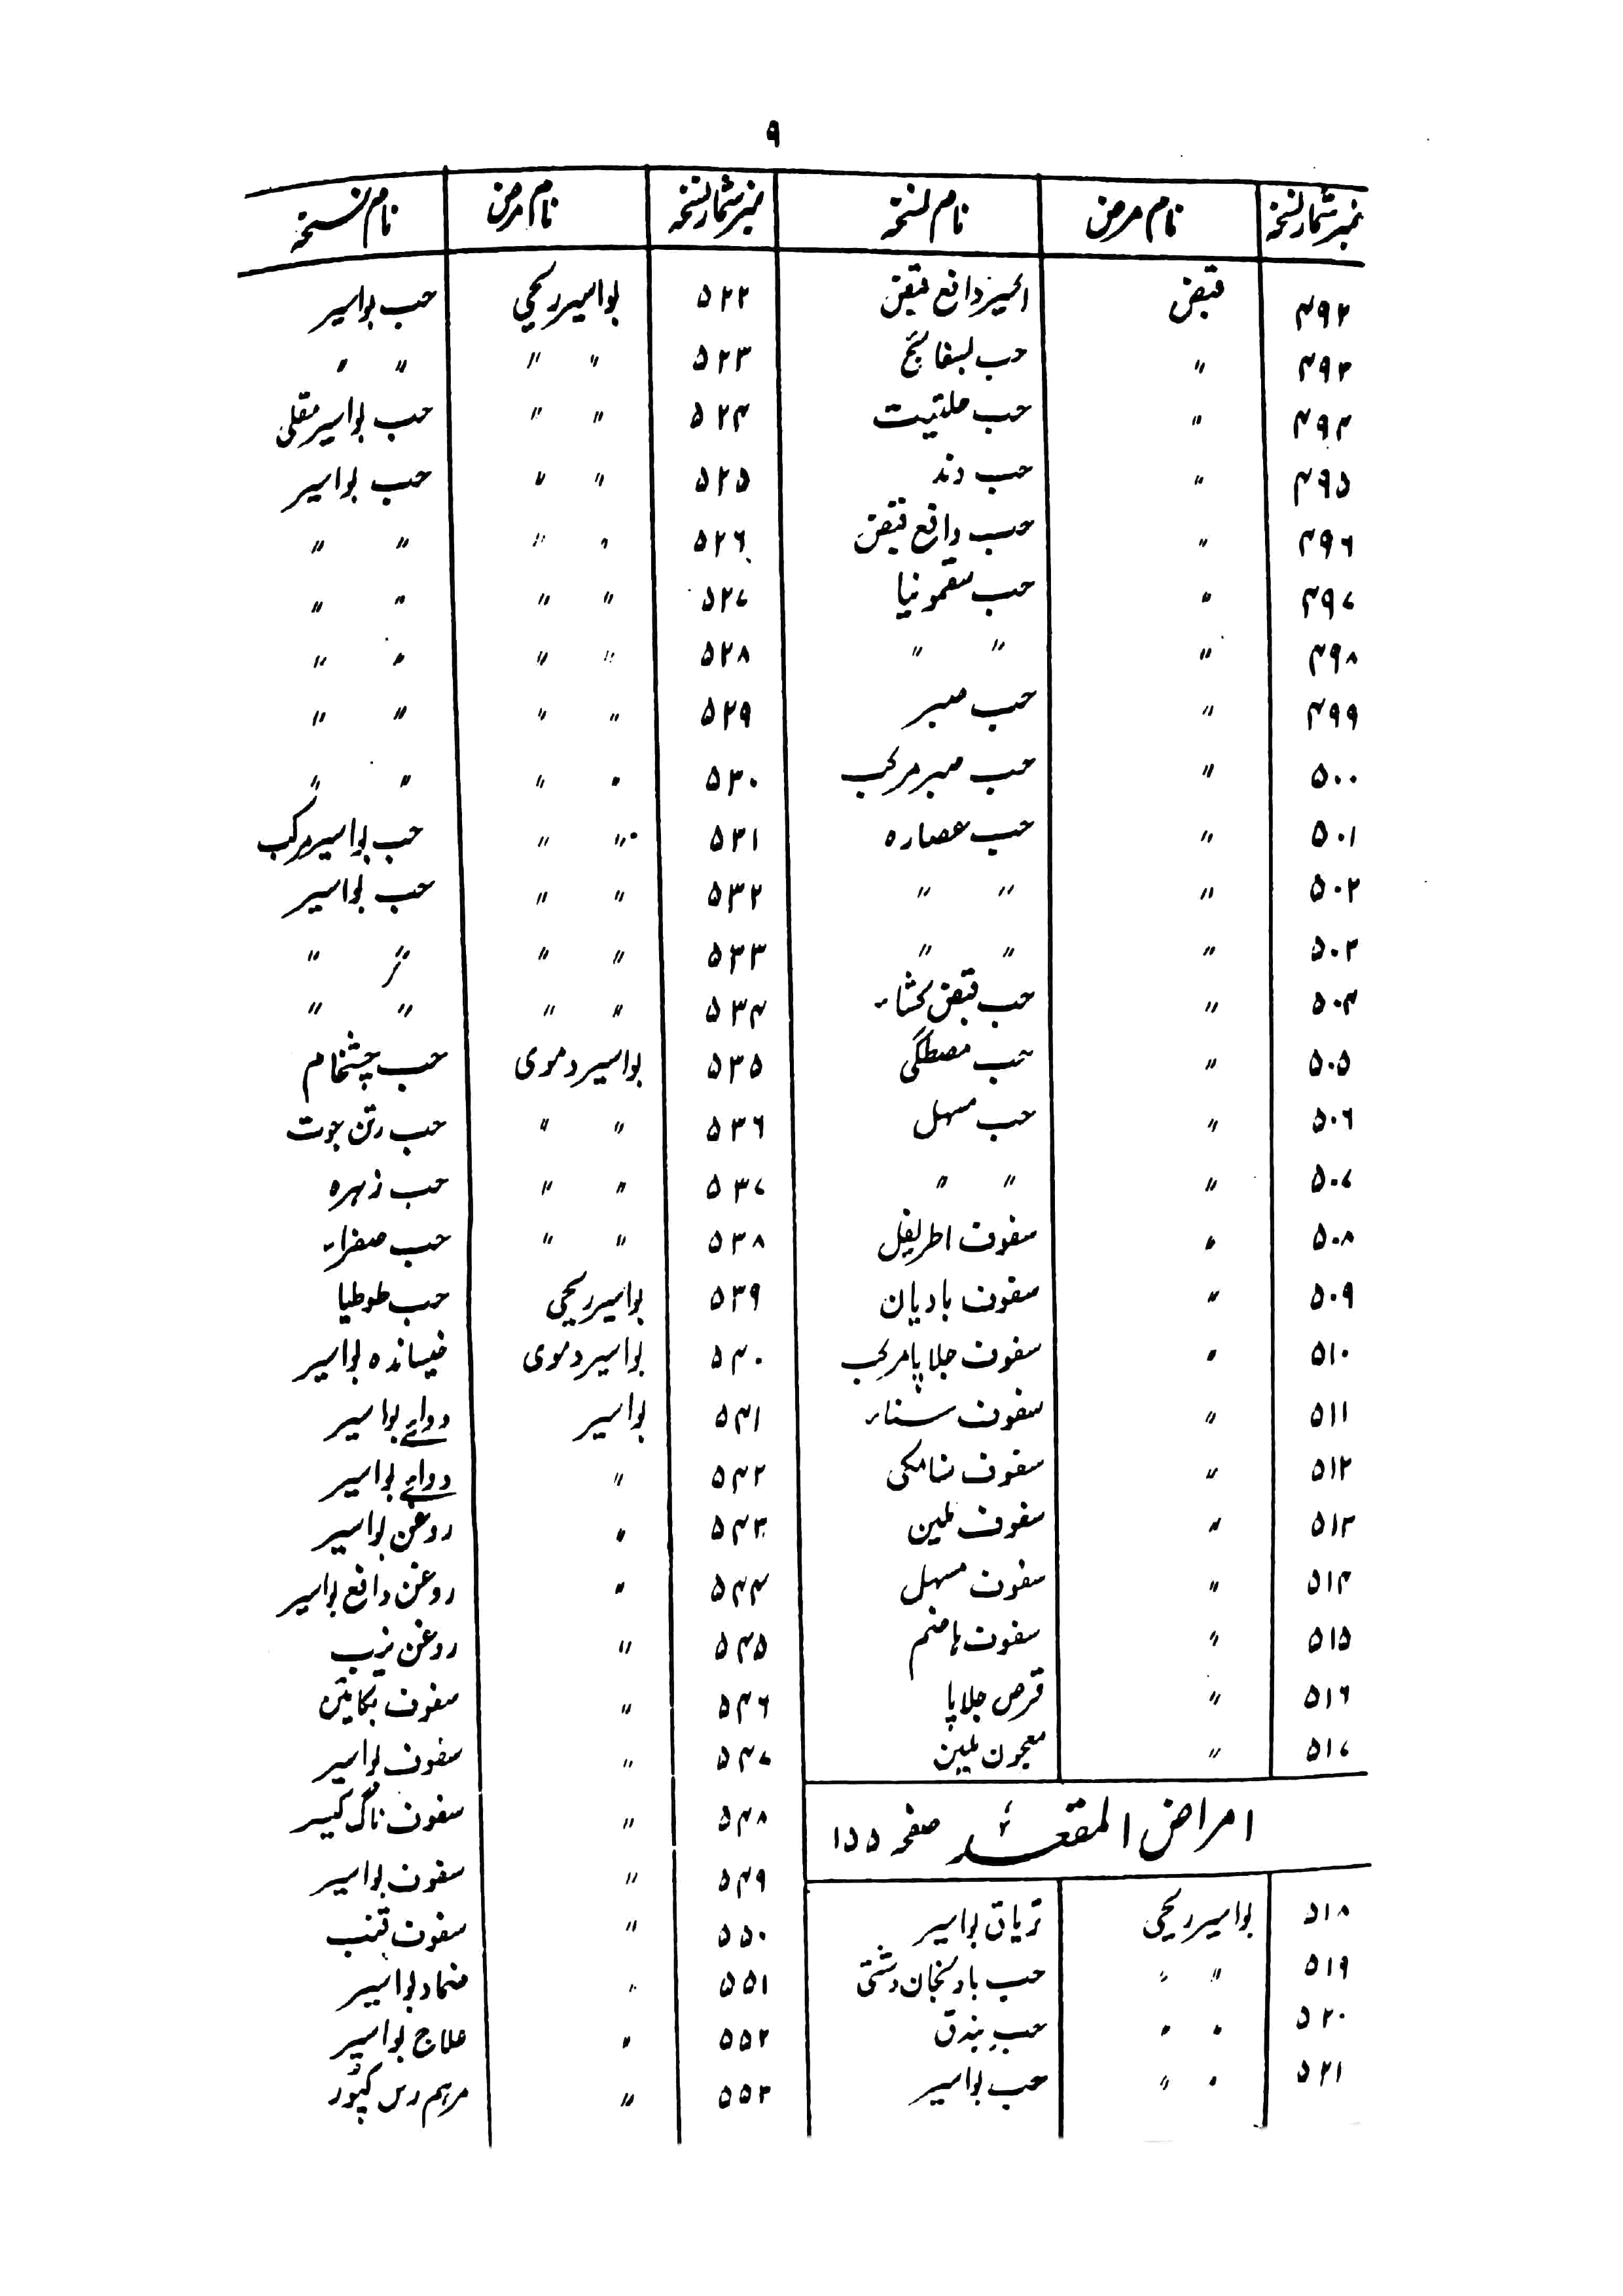 ۹
نمبر شمار نسخہ | نام مرض | نام نسخہ
۴۹۲ | قبض | اکسیر دافع قبض
۴۹۳ | " | حب بسفائج
۴۹۴ | " | حب حلتیت
۴۹۵ | " | حب دند
۴۹۶ | " | حب دافع قبض
۴۹۷ | " | حب سقمونیا
۴۹۸ | " | " "
۴۹۹ | " | حب صبر
۵۰۰ | " | حب صبر مرکب
۵۰۱ | " | حب عصارہ
۵۰۲ | " | " "
۵۰۳ | " | " "
۵۰۴ | " | حب قبض کشاء
۵۰۵ | " | حب مصطگی
۵۰۶ | " | حب مسہل
۵۰۷ | " | " "
۵۰۸ | " | سفوف اطریفل
۵۰۹ | " | سفوف بادیان
۵۱۰ | " | سفوف جلاپا مرکب
۵۱۱ | " | سفوف سناء
۵۱۲ | " | سفوف سنامکی
۵۱۳ | " | سفوف ملین
۵۱۴ | " | سفوف مسہل
۵۱۵ | " | سفوف ہاضم
۵۱۶ | " | قرص جلاپا
۵۱۷ | " | معجون ملین
امراض المقعد صفحہ ۱۵۵
۵۱۸ | بواسیر ریحی | تریاق بواسیر
۵۱۹ | " " | حب بادنجان دشتی
۵۲۰ | " " | حب بندق
۵۲۱ | " " | حب بواسیر
نمبر شمار نسخہ | نام مرض | نام نسخہ
۵۲۲ | بواسیر ریحی | حب بواسیر
۵۲۳ | " " | " "
۵۲۴ | " " | حب بواسیر مقلی
۵۲۵ | " " | حب بواسیر
۵۲۶ | " " | " "
۵۲۷ | " " | " "
۵۲۸ | " " | " "
۵۲۹ | " " | " "
۵۳۰ | " " | " "
۵۳۱ | " " | حب بواسیر مرکب
۵۳۲ | " " | حب بواسیر
۵۳۳ | " " | " "
۵۳۴ | " " | " "
۵۳۵ | بواسیر دموی | حب چشخام
۵۳۶ | " " | حب رتن جوت
۵۳۷ | " " | حب زہرہ
۵۳۸ | " " | حب صفراء
۵۳۹ | بواسیر ریحی | حب طوطیا
۵۴۰ | بواسیر دموی | خیساندہ بواسیر
۵۴۱ | بواسیر | دوائے بواسیر
۵۴۲ | " | دوائے بواسیر
۵۴۳ | " | روغن بواسیر
۵۴۴ | " | روغن دافع بواسیر
۵۴۵ | " | روغن
۵۴۶ | " | سفوف بکائین
۵۴۷ | " | سفوف بواسیر
۵۴۸ | " | سفوف ناگ کیسر
۵۴۹ | " | سفوف بواسیر
۵۵۰ | " | سفوف قنب
۵۵۱ | " | ضماد بواسیر
۵۵۲ | " | علاج بواسیر
۵۵۳ | " | مرہم رس کپور